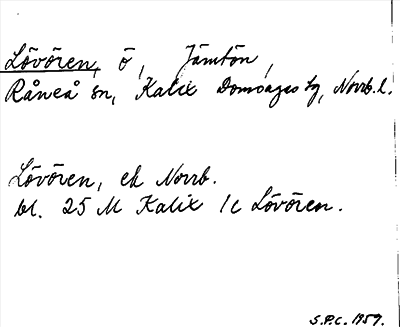 Lövören, ö, Jämtön,
Råneå sn, Kalix Domsagas tg, Norrb. l.
Lövören, ek Norrb.
bl. 25 M Kalix 1c Lövören.
S.P.C. 1959.